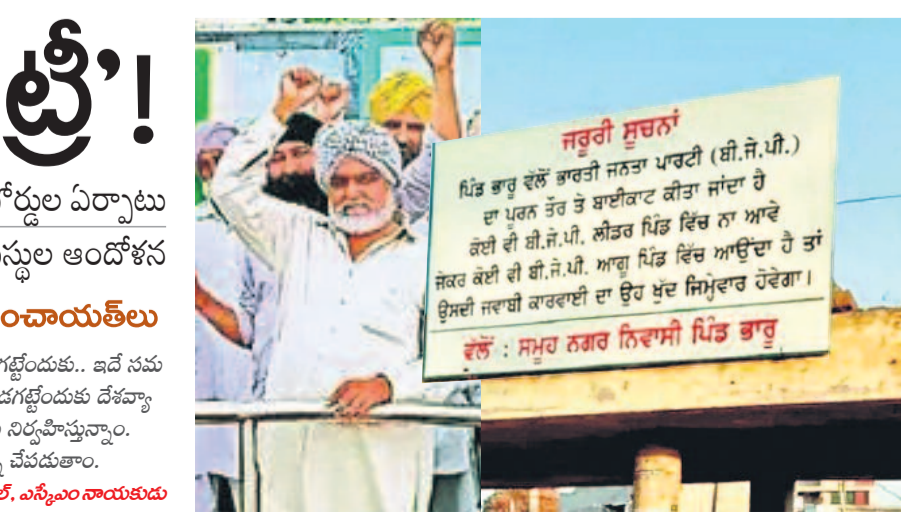 ట్రీ’!
ోర్డుల ఏర్పాటు
స్థుల ఆందోళన
ంచాయత్‌లు
గట్టేందుకు.. ఇదే సమ
డగట్టేందుకు దేశవ్యా
నిర్వహిస్తున్నాం.
చేపడుతాం.
ల్, ఎస్కేఎం నాయకుడు
ਜਰੂਰੀ ਸੂਚਨਾਂ
ਪਿੰਡ ਭਾਰੂ ਵੱਲੋਂ ਭਾਰਤੀ ਜਨਤਾ ਪਾਰਟੀ (ਬੀ.ਜੇ.ਪੀ.)
ਦਾ ਪੂਰਨ ਤੌਰ ਤੇ ਬਾਈਕਾਟ ਕੀਤਾ ਜਾਂਦਾ ਹੈ
ਕੋਈ ਵੀ ਬੀ.ਜੇ.ਪੀ. ਲੀਡਰ ਪਿੰਡ ਵਿੱਚ ਨਾ ਆਵੇ
ਜੇਕਰ ਕੋਈ ਵੀ ਬੀ.ਜੇ.ਪੀ. ਆਗੂ ਪਿੰਡ ਵਿੱਚ ਆਉਂਦਾ ਹੈ ਤਾਂ
ਉਸਦੀ ਜਵਾਬੀ ਕਾਰਵਾਈ ਦਾ ਉਹ ਖੁੱਦ ਜਿਮ੍ਹੇਵਾਰ ਹੋਵੇਗਾ।
ਵੱਲੋਂ : ਸਮੂਹ ਨਗਰ ਨਿਵਾਸੀ ਪਿੰਡ ਭਾਰੂ